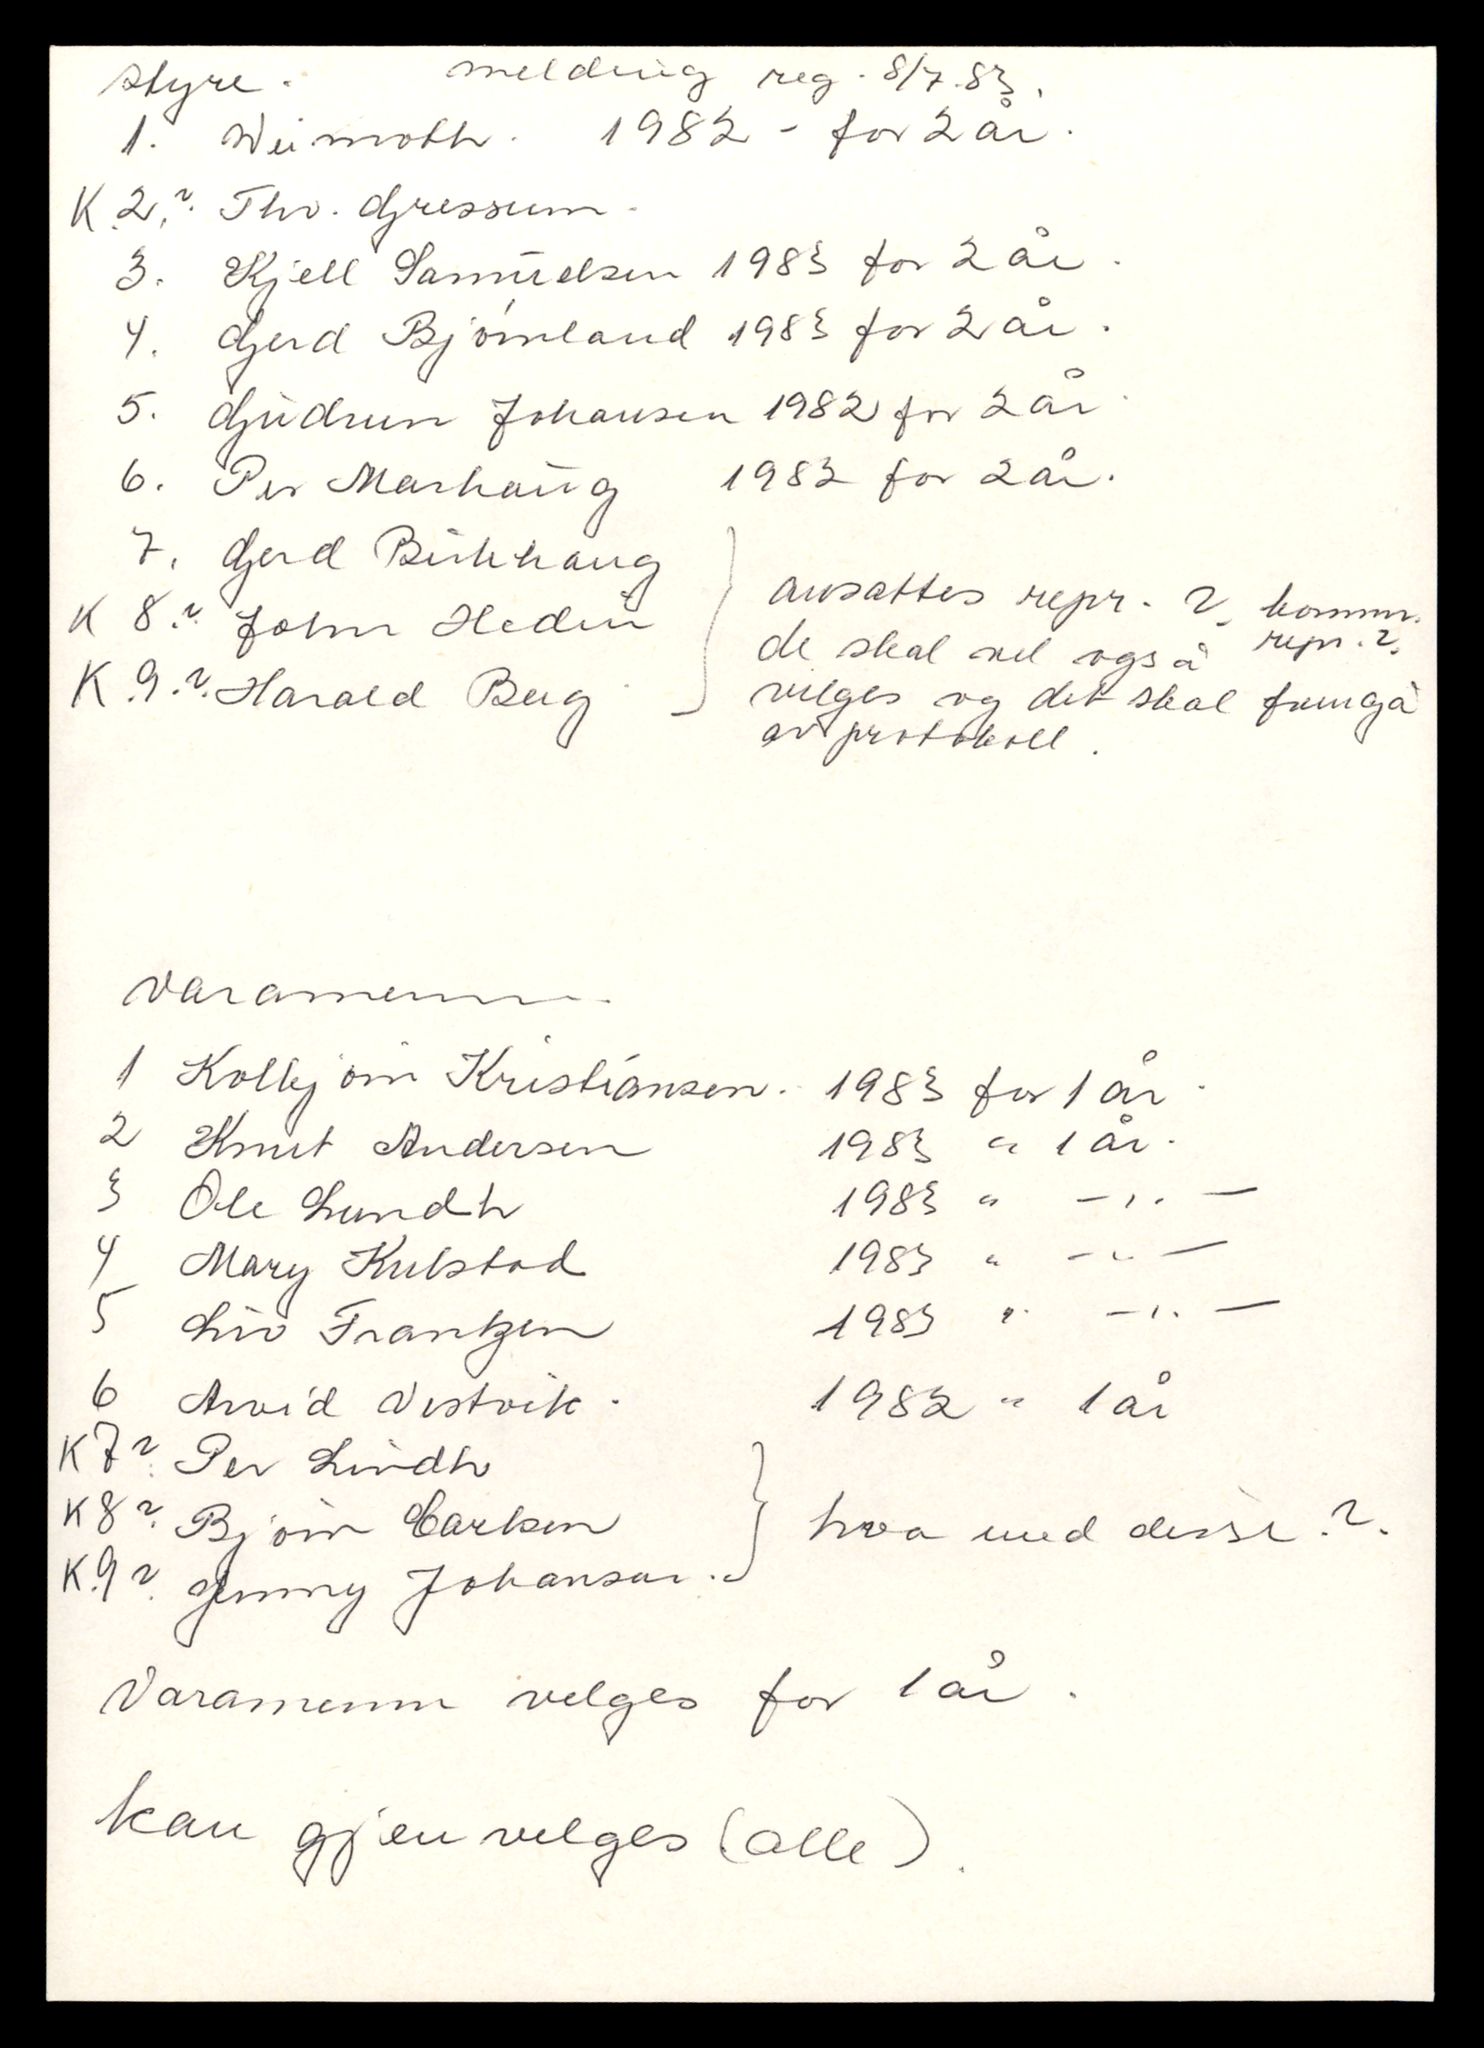 styre. melding reg. 8/7.83.
1. Weimoth. 1982 - for 2 år.
K 2.? Thv. Gressum.
3. Kjell Samuelsen 1983 for 2 år.
4. Gerd Bjørnland 1983 for 2 år.
5. Gudrun Johansen 1982 for 2 år.
6. Per Marhaug 1982 for 2 år.
7. Gerd Birkhaug
K 8.? John Hedin
K 9.? Harald Berg
ansattes repr. ? komm. repr. ?
de skal vel også
velges og det skal fremgå
av protokoll.
Varamenn.
1 Kolbjørn Kristiansen. 1983 for 1 år.
2 Knut Andersen 1983 " 1 år.
3 Ole Lundh 1983 " - " -
4 Mary Kulstad 1983 " - " -
5 Liv Frantzen 1983 " - " -
6 Arvid Vestvik. 1982 " 1 år
K 7?. Per Lindh
K 8?. Bjørn Carlsen
K 9?. Jenny Johansen.
hva med disse ?.
Varamenn velges for 1 år.
kan gjenvelges (alle).